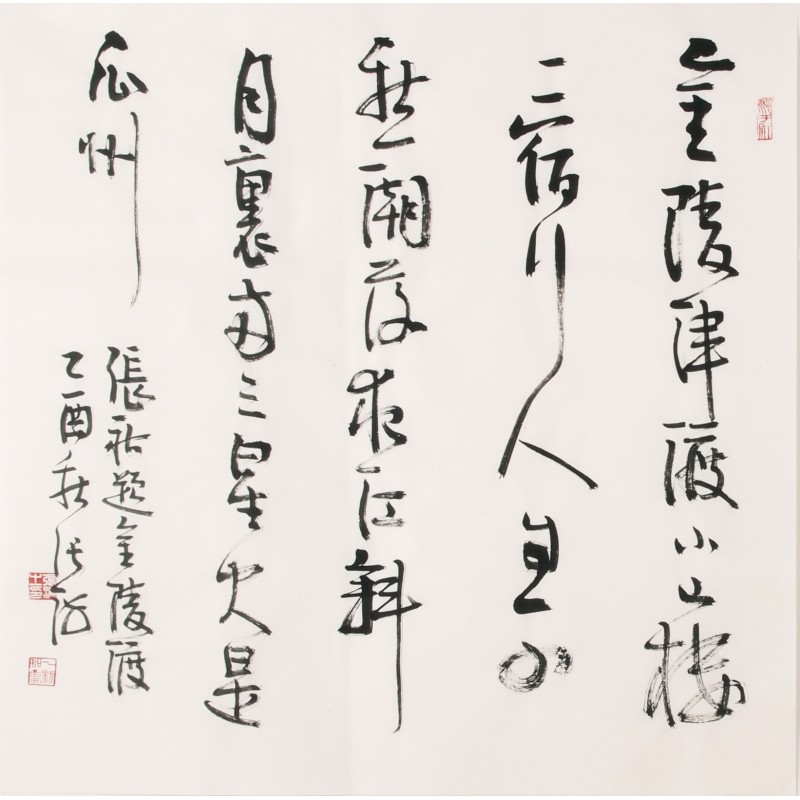 金陵津渡小山樓
一宿行人自可
愁潮落夜江斜
月裏兩三星火是
瓜州
張祜題金陵渡
乙酉秋